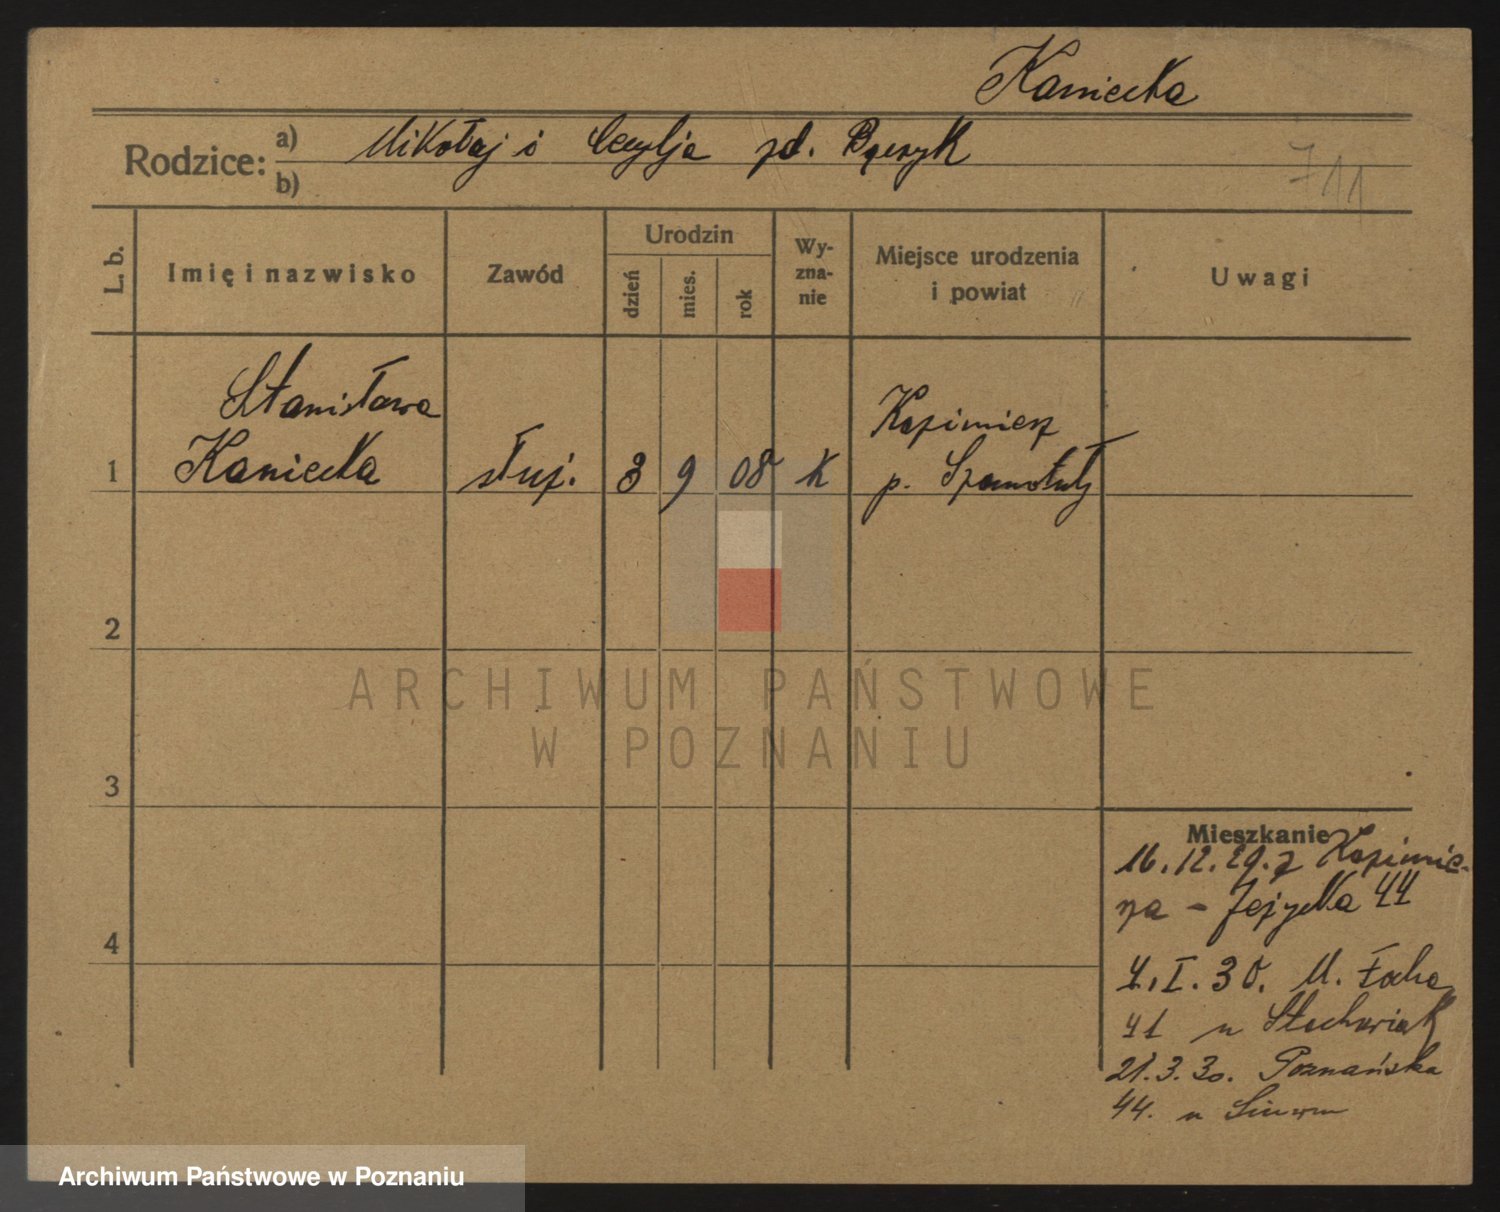 Kaniecka
Rodzice: a) Mikołaj i Cecylja zd. Bączyk
b)
711
L. b.
Imię i nazwisko
Zawód
Urodzin
dzień
mies.
rok
Wy-
zna-
nie
Miejsce urodzenia
i powiat
Uwagi
Stanisława
Kaniecka
1
służ. 3 9 08 K
Kazimierz
p. Szamotuły
2
3
4
Mieszkanie
16.12.29. z Kazimie-
rza - Jeżycka 44
4.I.30. M. Focha
41 u Stachowiak
21.3.30. Poznańska
44. u
ARCHIWUM PAŃSTWOWE
W POZNANIU
Archiwum Państwowe w Poznaniu